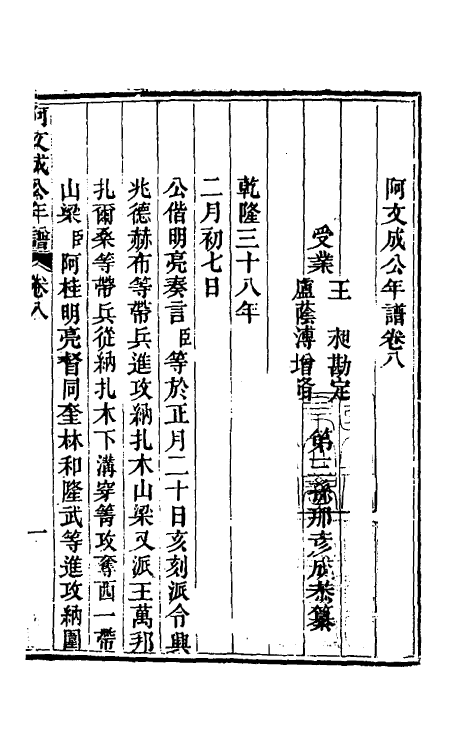 阿文成公年譜卷八
受業 王昶勘定 盧蔭溥增脩 第三孫那彥成恭纂
乾隆三十八年
二月初七日
公偕明亮奏言臣等於正月二十日亥刻派令興
兆德赫布等帶兵進攻納扎木山梁又派王萬邦
扎爾桑等帶兵從納扎木下溝穿箐攻奪西一帶
山梁臣阿桂明亮督同奎林和隆武等進攻納圍
阿文成公年譜 卷八 一